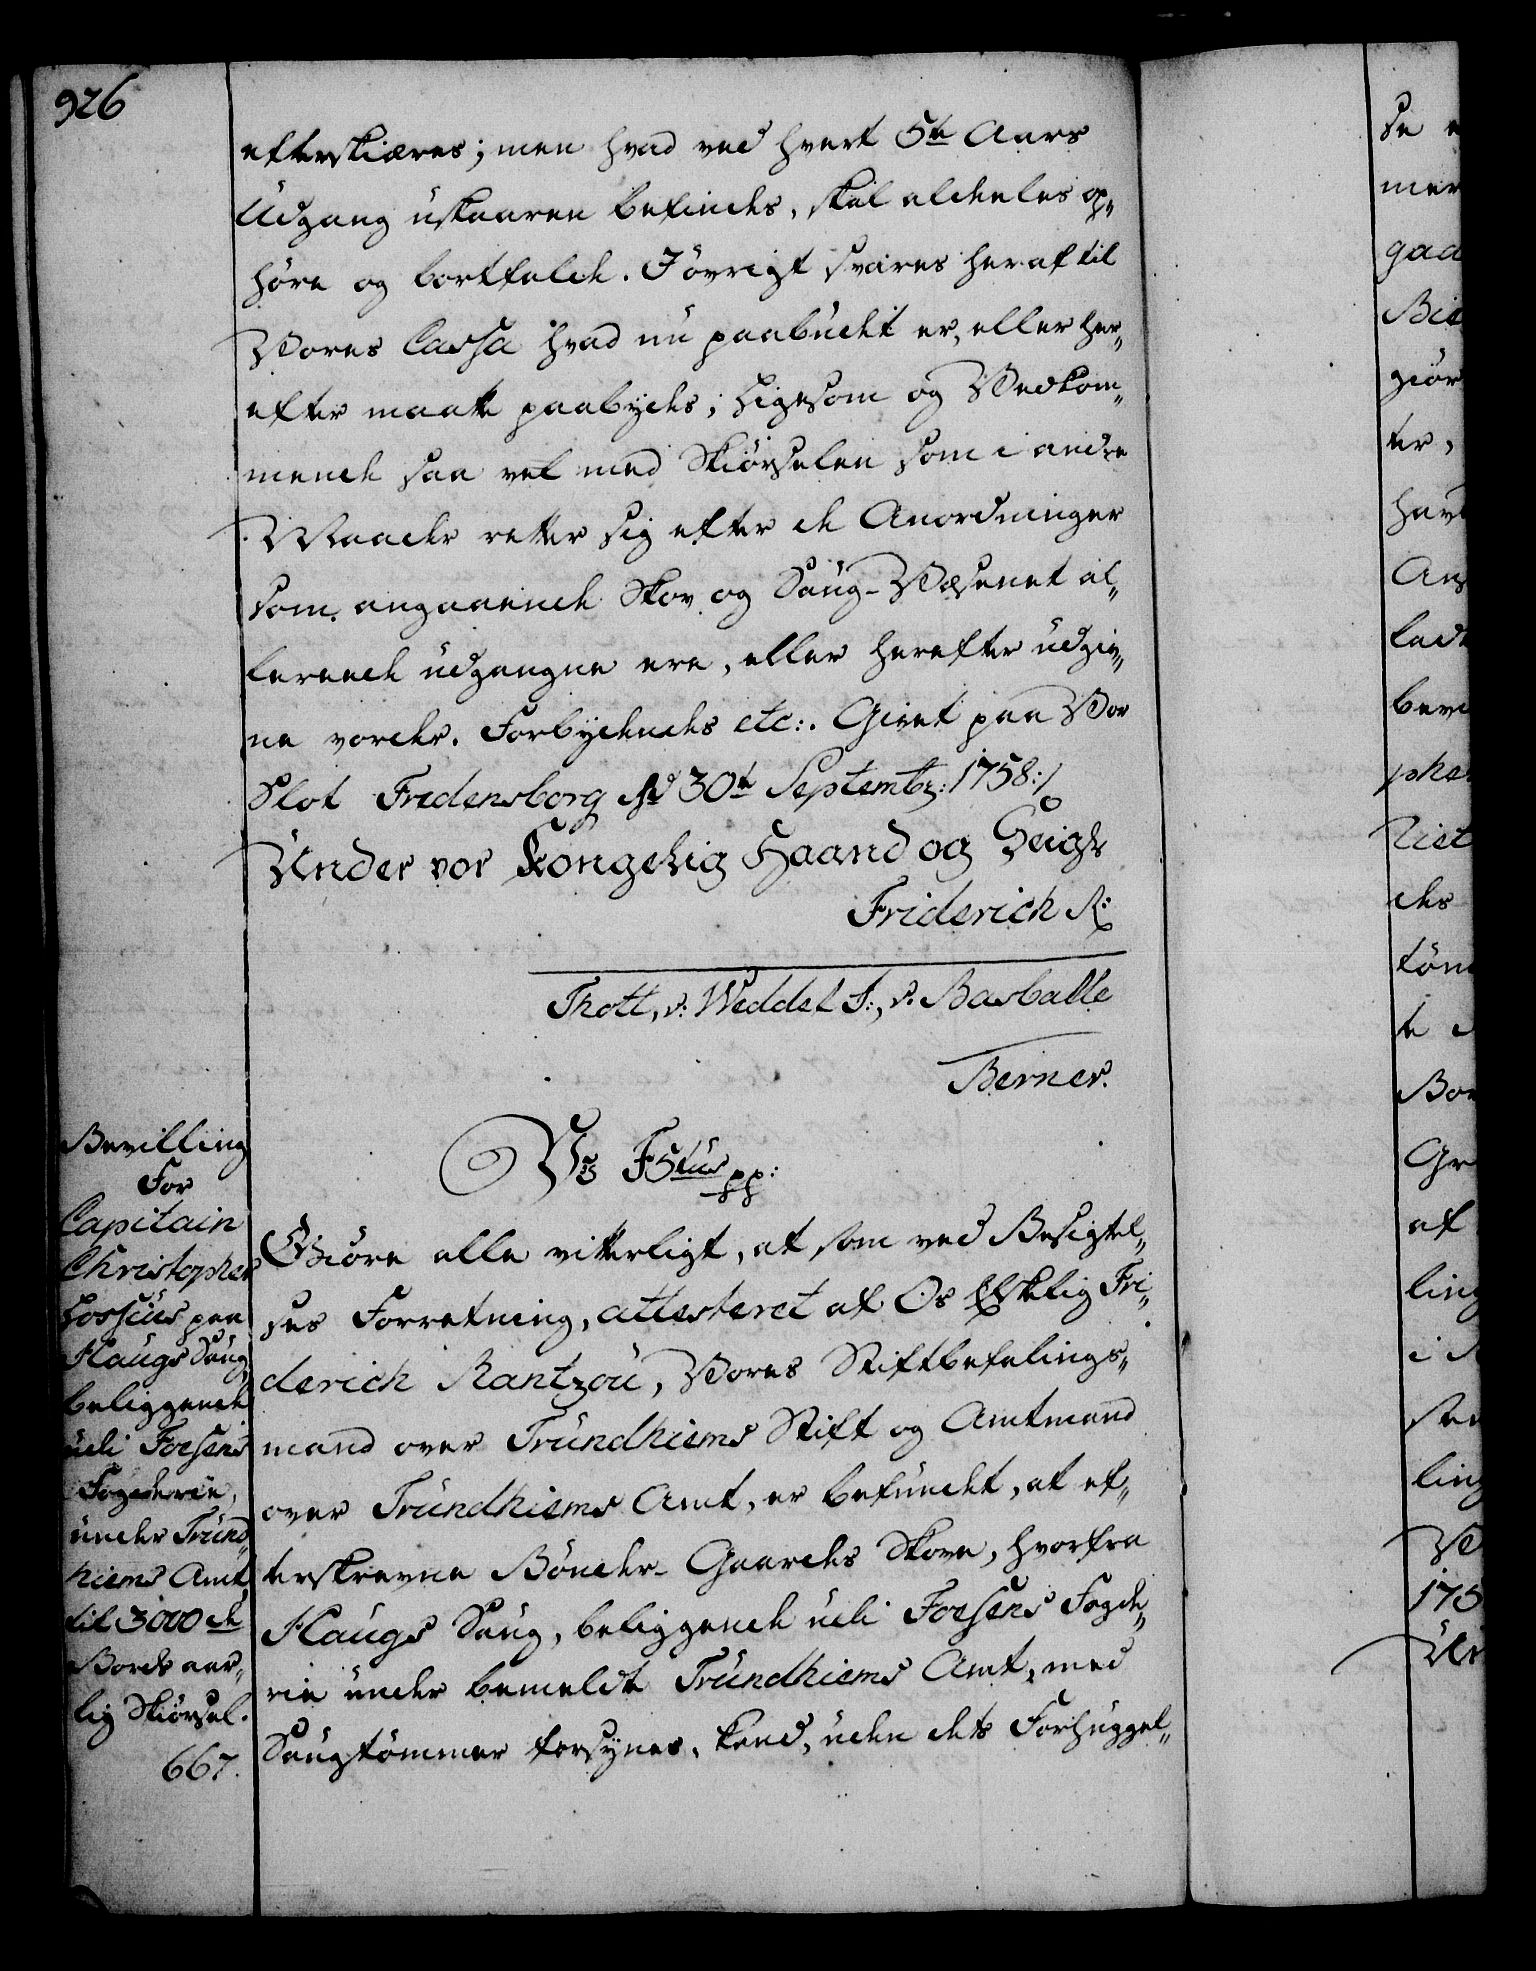 926
efterskiæres; men hvad ved hvert 5te Aars
Udgang uskaaren befindes, skal aldeeles op„
høre og bortfalde. I øvrigt svares heraf til
Vores Cassa hvad nu paabudet er, eller her„
efter maatte paabydes; Ligesom og Vedkom„
mende saa vel med Skiørselen som i andre
Maader retter sig efter de Anordninger
som angaaende Skov og Saug-Væsenet al„
lereede udgangne ere, eller herefter udgiv„
ne vorder. Forbydendes etc:. Givet paa Vor
Slot Fredensborg d. 30te Septembr: 1758:/
Under vor Kongelig Haand og Seigl
Friderich R:
Thott, v: Weddel F:, v: Barballe
Berner.
Bevilling
For
Capitain
Christopher
Lossius paa
Haugs Saug
beliggende
udi Foesens
Fogderie,
under Trund„
hiems Amt,
til 3000 de
Bords aar„
lig Skiørsel.
667.
Vs F5tus pp:
Giøre alle vitterligt, at som ved Besigtel„
ses Forretning, attesteret af Os Elskelig Fri„
derich Rantzou, Vores Stiftbefalings„
mand over Trundhiems Stift og Amtmand
over Trundhiems Amt, er befundet, at ef„
terskrevne Bønder-Gaardes Skove, hvorfra
Haugs Saug, beliggende udi Foesens Fogde„
rie under bemeldte Trundhiems Amt, med
Saugtømmer forsynes, kand, uden dets Forhuggel„